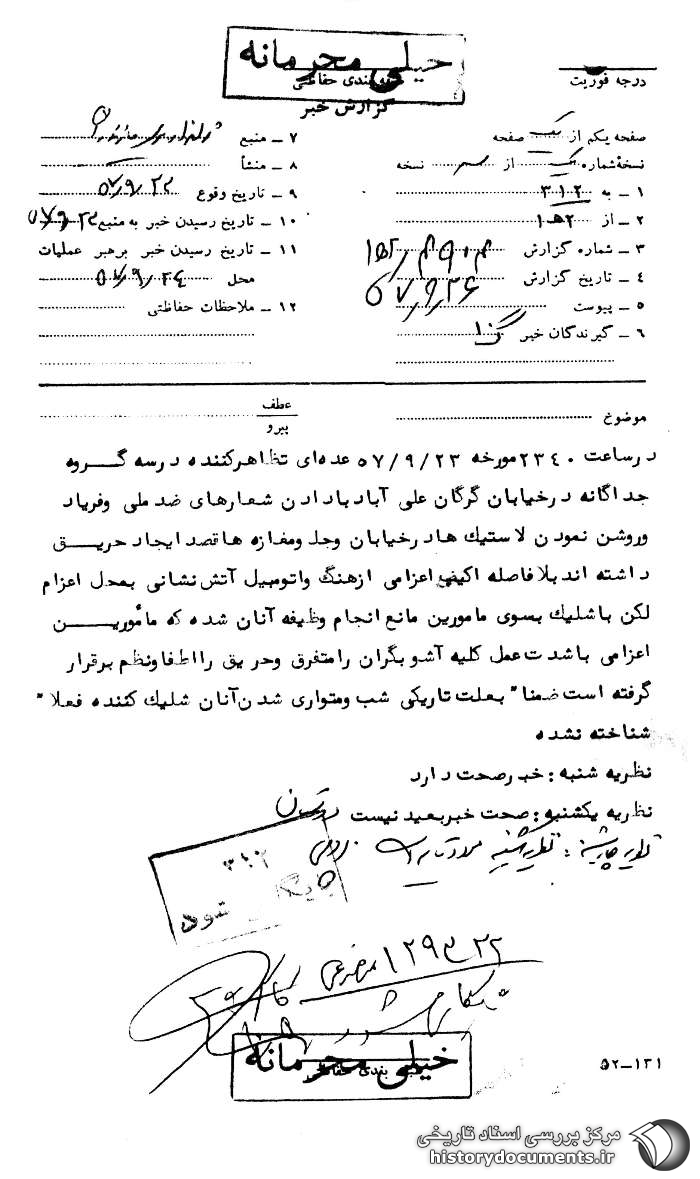 خیلی محرمانه
طبقه بندی حفاظتی
گزارش خبر
درجه فوریت
صفحه یکم از یک صفحه
نسخهٔ شماره یک از نسخه
۱ ـ به ۳۱۲
۲ ـ از ۱۲ﻫ
۳ ـ شماره گزارش
۴ ـ تاریخ گزارش ۵۷/۹/۲۶
۵ ـ پیوست
۶ ـ گیرندگان خبر
۷ ـ منبع
۸ ـ منشأ
۹ ـ تاریخ وقوع ۵۷/۹/۲۳
۱۰ ـ تاریخ رسیدن خبر به منبع ۵۷/۹/۲۳
۱۱ ـ تاریخ رسیدن خبر برهبر عملیات
محل ۵۷/۹/۲۴
۱۲ ـ ملاحظات حفاظتی
موضوع
عطف
پیرو
درساعت ۲۳۴۰ مورخه ۵۷/۹/۲۳ عده‌ای تظاهرکننده درسه گروه
جداگانه درخیابان گرگان علی آباد بادادن شعارهای ضد ملی وفریاد
وروشن نمودن لاستیک هادرخیابان وجلومغازه هاقصد ایجاد حریق
داشته اند بلافاصله اکیپ اعزامی ازهنگ واتومبیل آتش نشانی بمحل اعزام
لکن باشلیک بسوی مامورین مانع انجام وظیفه آنان شده که مأمورین
اعزامی باشدت عمل کلیه آشوبگران رامتفرق وحریق رااطفاونظم برقرار
گرفته است ضمنا" بعلت تاریکی شب ومتواری شدن آنان شلیک کننده فعلا"
شناخته نشده
نظریه شنبه : خبرصحت دارد
نظریه یکشنبه : صحت خبربعید نیست
۳۱۲
بایگانی شود
۱۲۹۳۲۲
خیلی محرمانه
طبقه بندی حفاظتی
۵۲-۱۳۱
مرکز بررسی اسناد تاریخی
historydocuments.ir